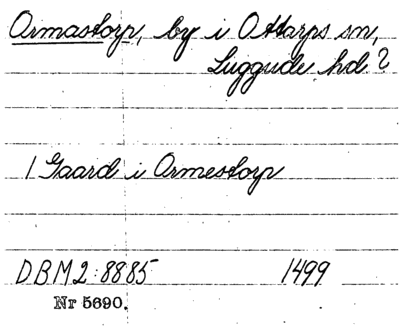 Ormastorp, by i Ottarps sn,
Luggude hd?
1 Gaard i Ormestorp
DBM2:8885 1499
Nr 5690.